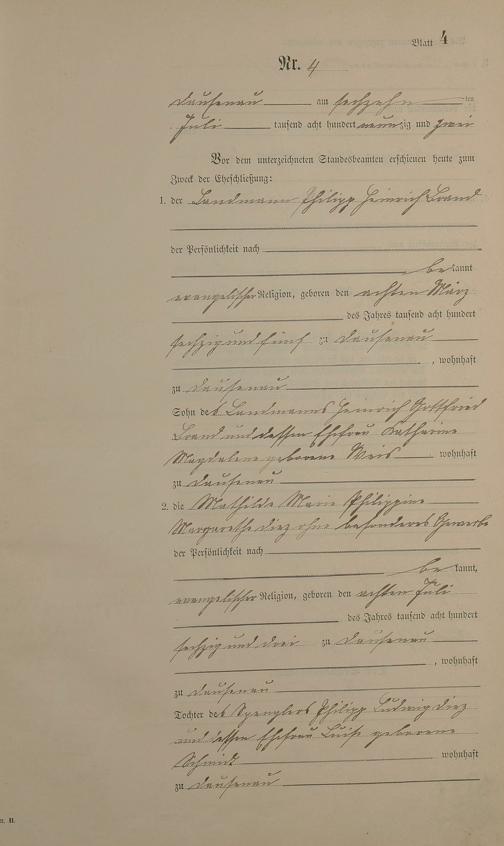 Blatt 4
Nr. 4
Dausenau am sechzehn ten
Juli tausend acht hundert neunzig und zwei
Vor dem unterzeichneten Standesbeamten erschienen heute zum
Zweck der Eheschließung:
1. der Landmann Philipp Heinrich Brand
der Persönlichkeit nach
be kannt
evangelischer Religion, geboren den achten März
des Jahres tausend acht hundert
sechzig und fünf zu Dausenau
, wohnhaft
zu Dausenau
Sohn des Landmanns Heinrich Gottfried
Brand und dessen Ehefrau Katharine
Magdalene geborene Weis wohnhaft
zu Dausenau
2. die Mathilde Marie Philippine
Margarethe Diez ohne besonderes Gewerbe
der Persönlichkeit nach
be kannt,
evangelischer Religion, geboren den achten Juli
des Jahres tausend acht hundert
sechzig und drei zu Dausenau
, wohnhaft
zu Dausenau
Tochter des Spenglers Philipp Ludwig Diez
und dessen Ehefrau Luise geborene
Schmidt wohnhaft
zu Dausenau